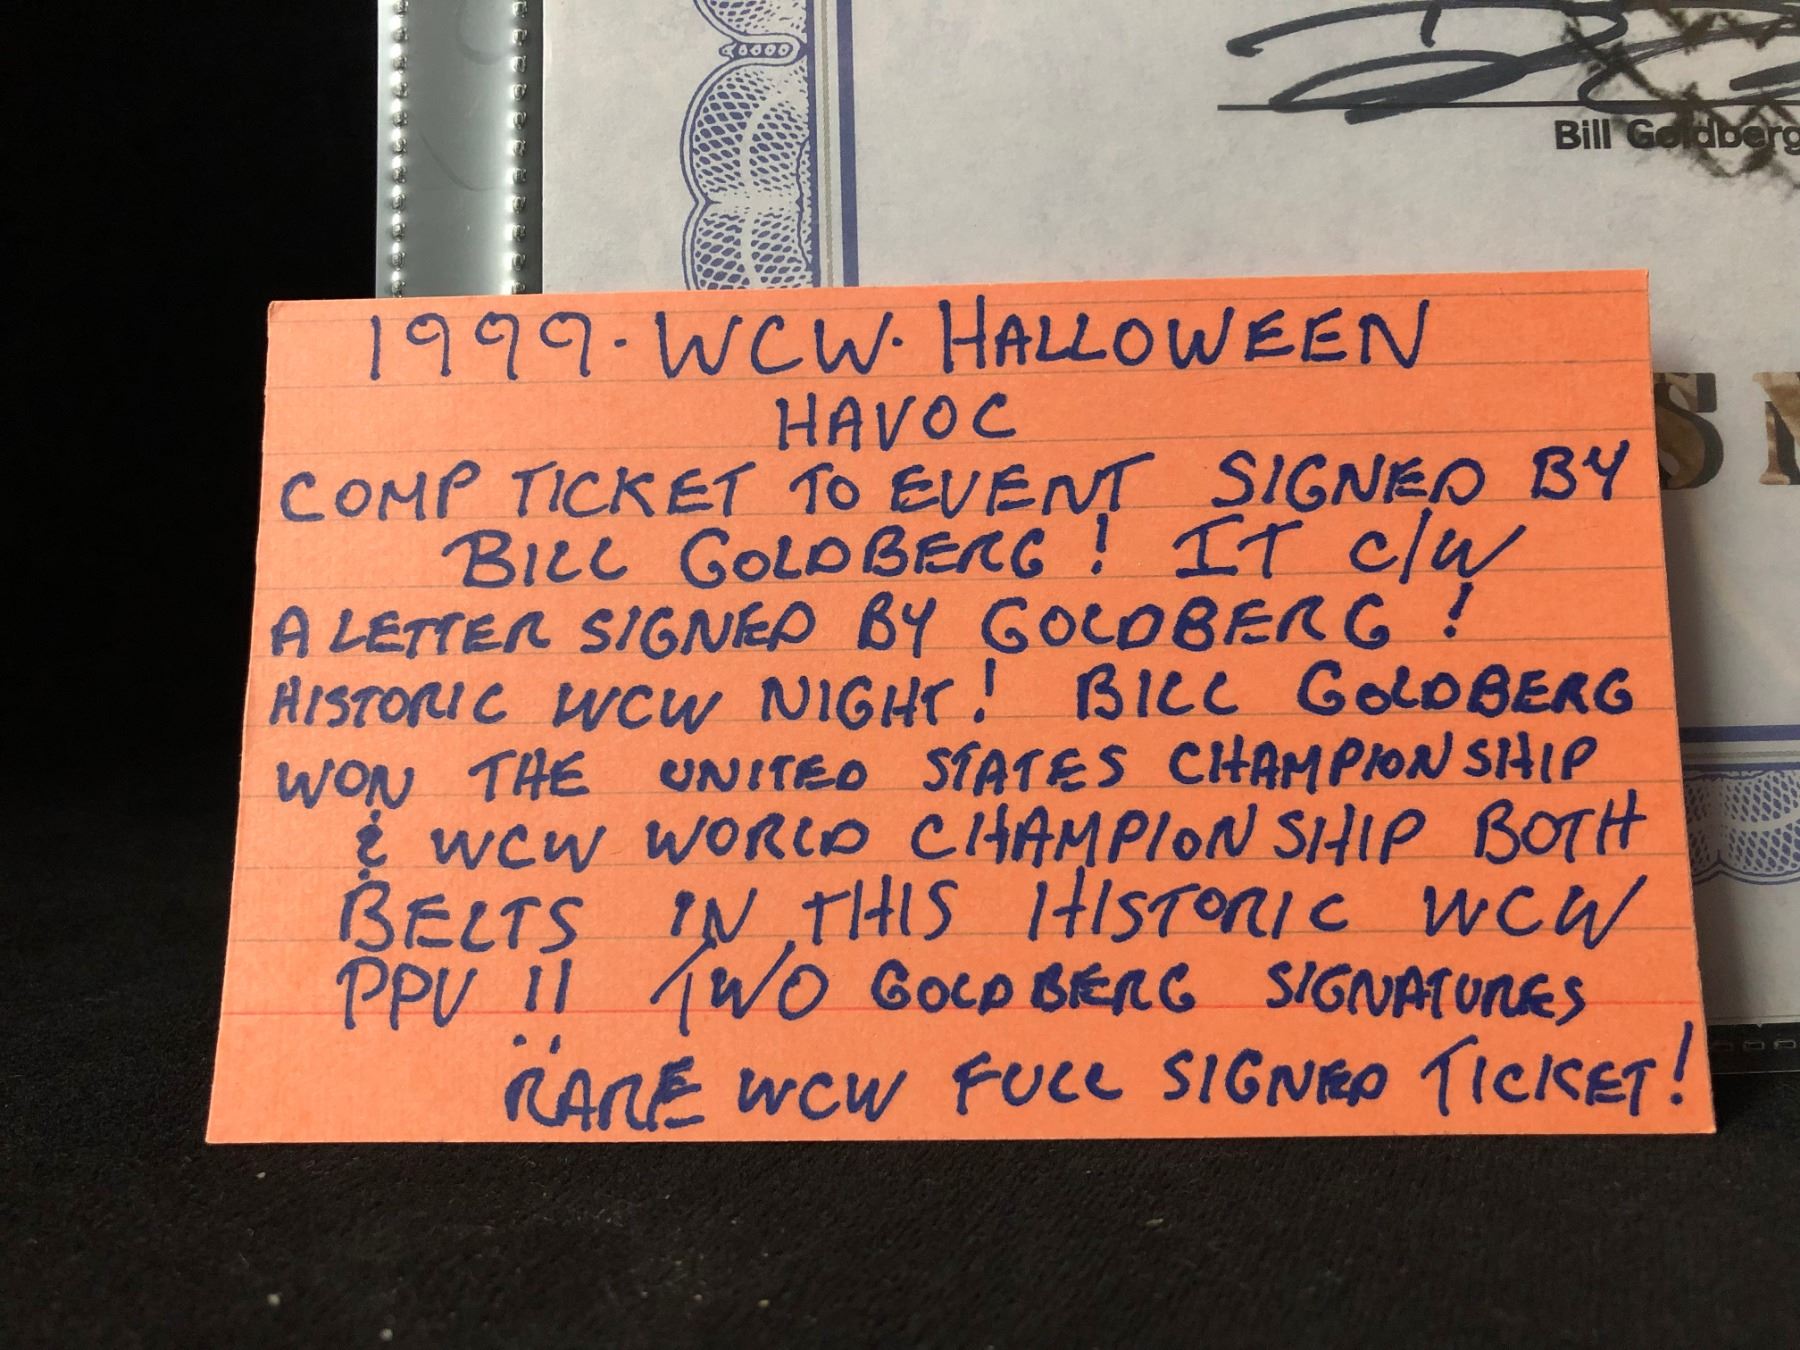 Bill Goldberg
1999. WCW. HALLOWEEN
HAVOC
COMP TICKET TO EVENT SIGNED BY
BILL GOLDBERG! IT C/W
A LETTER SIGNED BY GOLDBERG!
HISTORIC WCW NIGHT! BILL GOLDBERG
WON THE UNITED STATES CHAMPIONSHIP
& WCW WORLD CHAMPIONSHIP BOTH
BELTS IN THIS HISTORIC WCW
PPV !! TWO GOLDBERG SIGNATURES
RARE WCW FULL SIGNED TICKET!